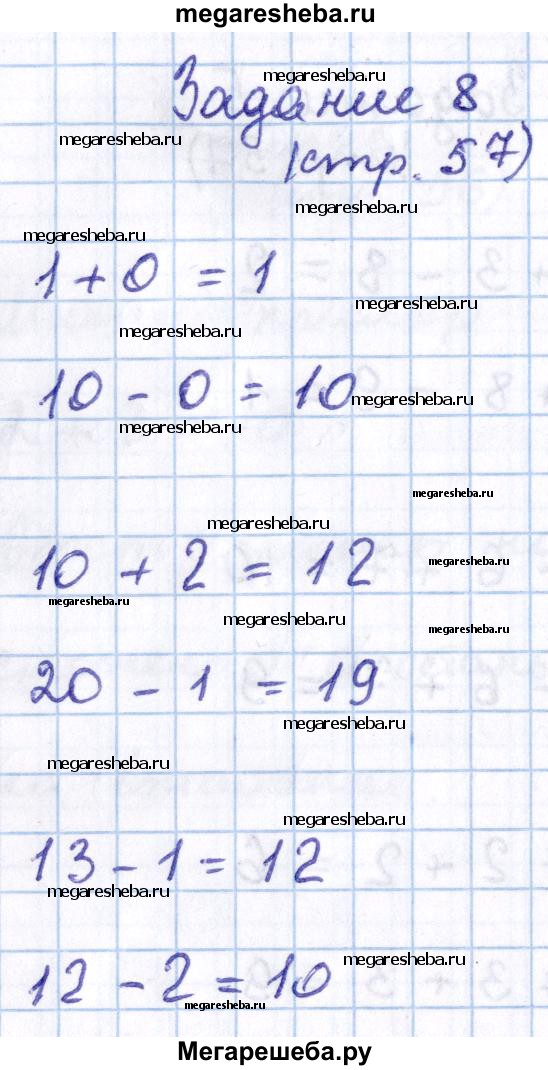 megaresheba.ru
megaresheba.ru
Задание 8
megaresheba.ru
(стр. 57)
megaresheba.ru
megaresheba.ru
1 + 0 = 1
megaresheba.ru
megaresheba.ru
10 - 0 = 10
megaresheba.ru
megaresheba.ru
megaresheba.ru
megaresheba.ru
10 + 2 = 12
megaresheba.ru
megaresheba.ru
megaresheba.ru
megaresheba.ru
20 - 1 = 19
megaresheba.ru
megaresheba.ru
megaresheba.ru
13 - 1 = 12
megaresheba.ru
megaresheba.ru
12 - 2 = 10
megaresheba.ru
Мегарешеба.ру